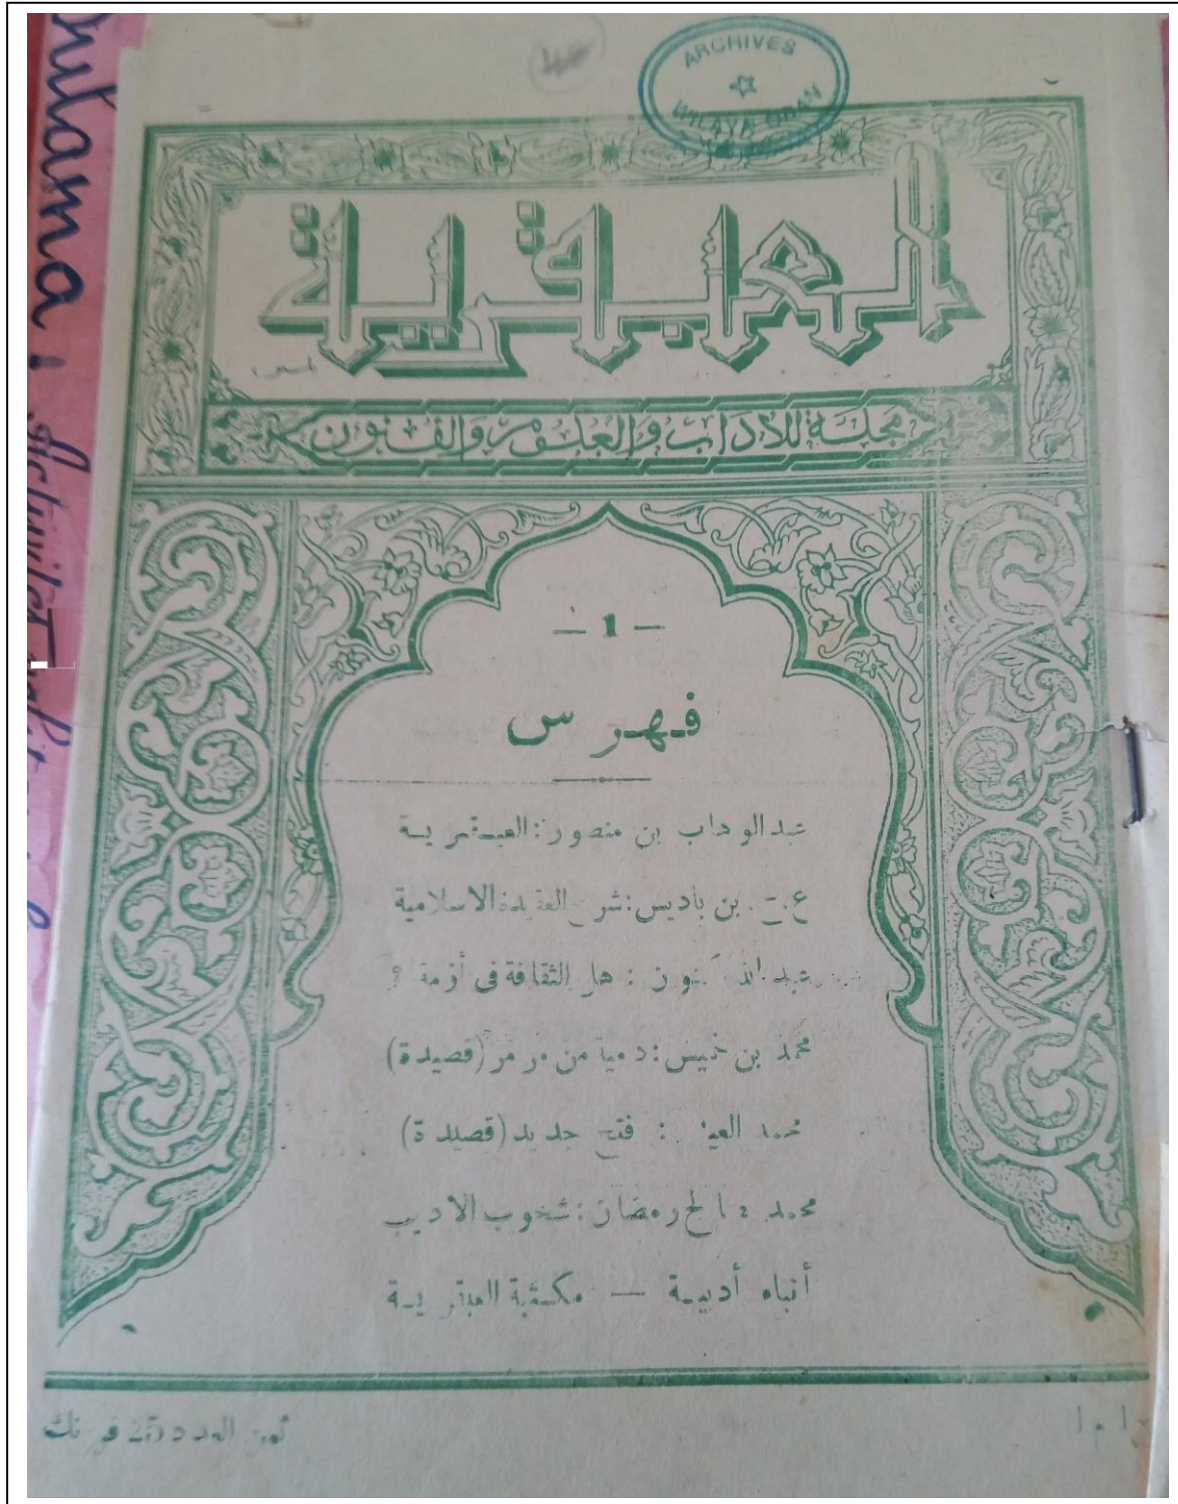 ARCHIVES
WILAYA ORAN
العبقرية
مجلة للآداب والعلوم والفنون
— 1 —
فهرس
عبد الوهاب بن منصور: العبقرية
ع.ح. بن باديس: شرح العقيدة الاسلامية
هل الثقافة في أزمة ؟
محمد بن خميس: دمية من مرمر (قصيدة)
محمد العيد : فتح جديد (قصيدة)
محمد صالح رمضان: شحوب الاديب
أنباء أدبية — مكتبة العبقرية
ثمن العدد 25 فرنك